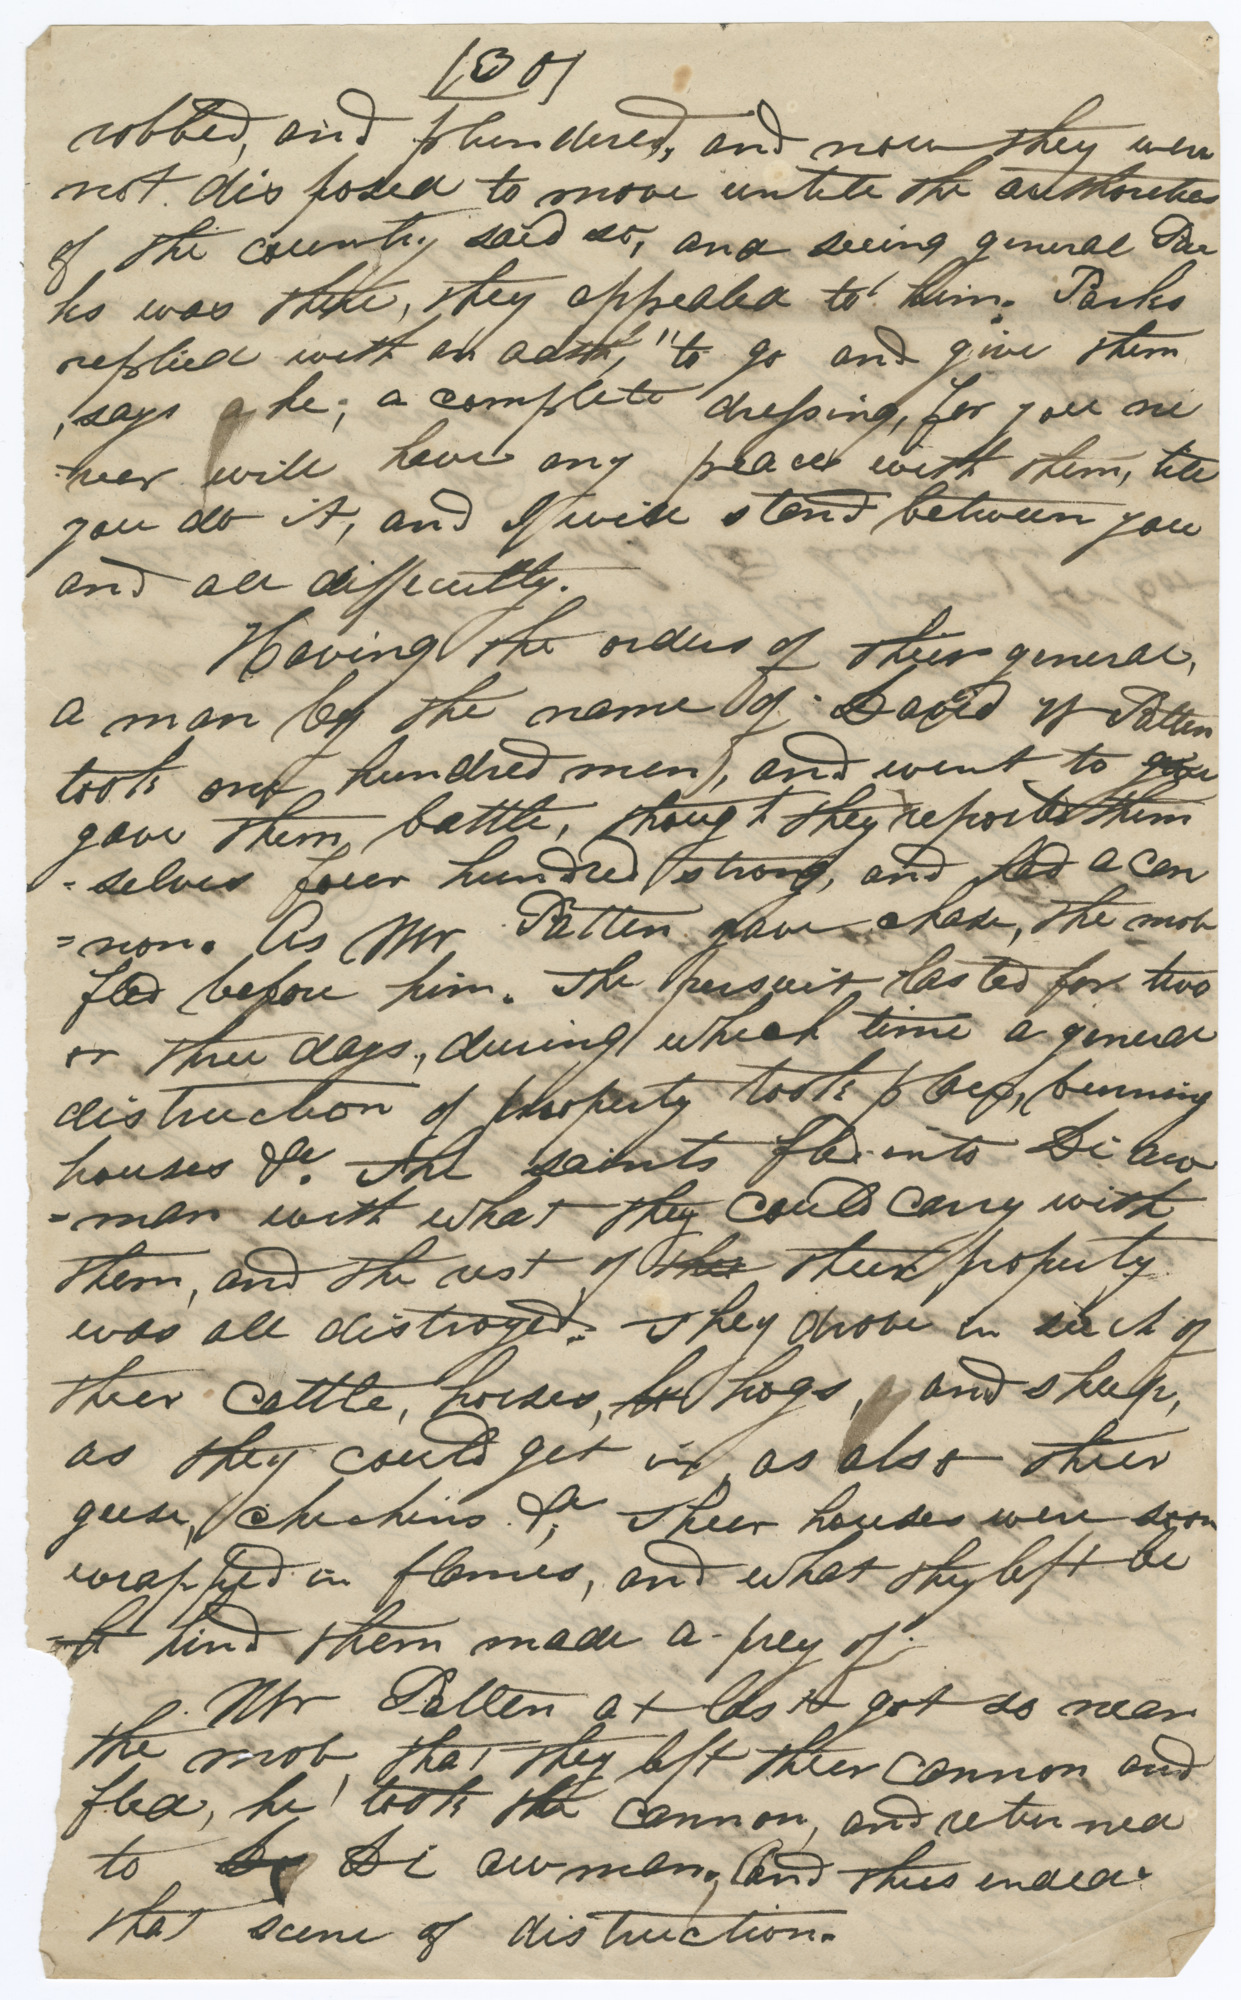 (30)
robbed, and plundered, and now they were
not disposed to move untill the authorities
of the country said so, and seeing general Par
ks was there, they appealed to him. Parks
replied with an oath, "to go and give them
, says he, a complete dressing, for you ne
=ver will have any peace with them, till
you do it, and I will stand between you
and all difficulty.
Having the orders of their general,
a man by the name of David W Patten
took one hundred men, and went to give
gave them battle, thought they reported them
-selves four hundred strong, and had a can
=non. As Mr Patten gave chase, the mob
fled before him. The persuit lasted for two
or three days, during which time a general
distruction of property took place, burning
houses &c. The saints fled into Di aw
=man with what they could carry with
them, and the rest of the their property
was all distroyed. They drove in such of
their cattle, horses, hogs, and sheep,
as they could get in, as also their
geese, chickins &c; Their houses were soon
wrapped in flames, and what they left be
hind them made a prey of.
Mr Patten at last got so near
the mob, that they left their cannon and
fled, he took the cannon, and returned
to Di aw man, and thus ended
that scene of distruction.